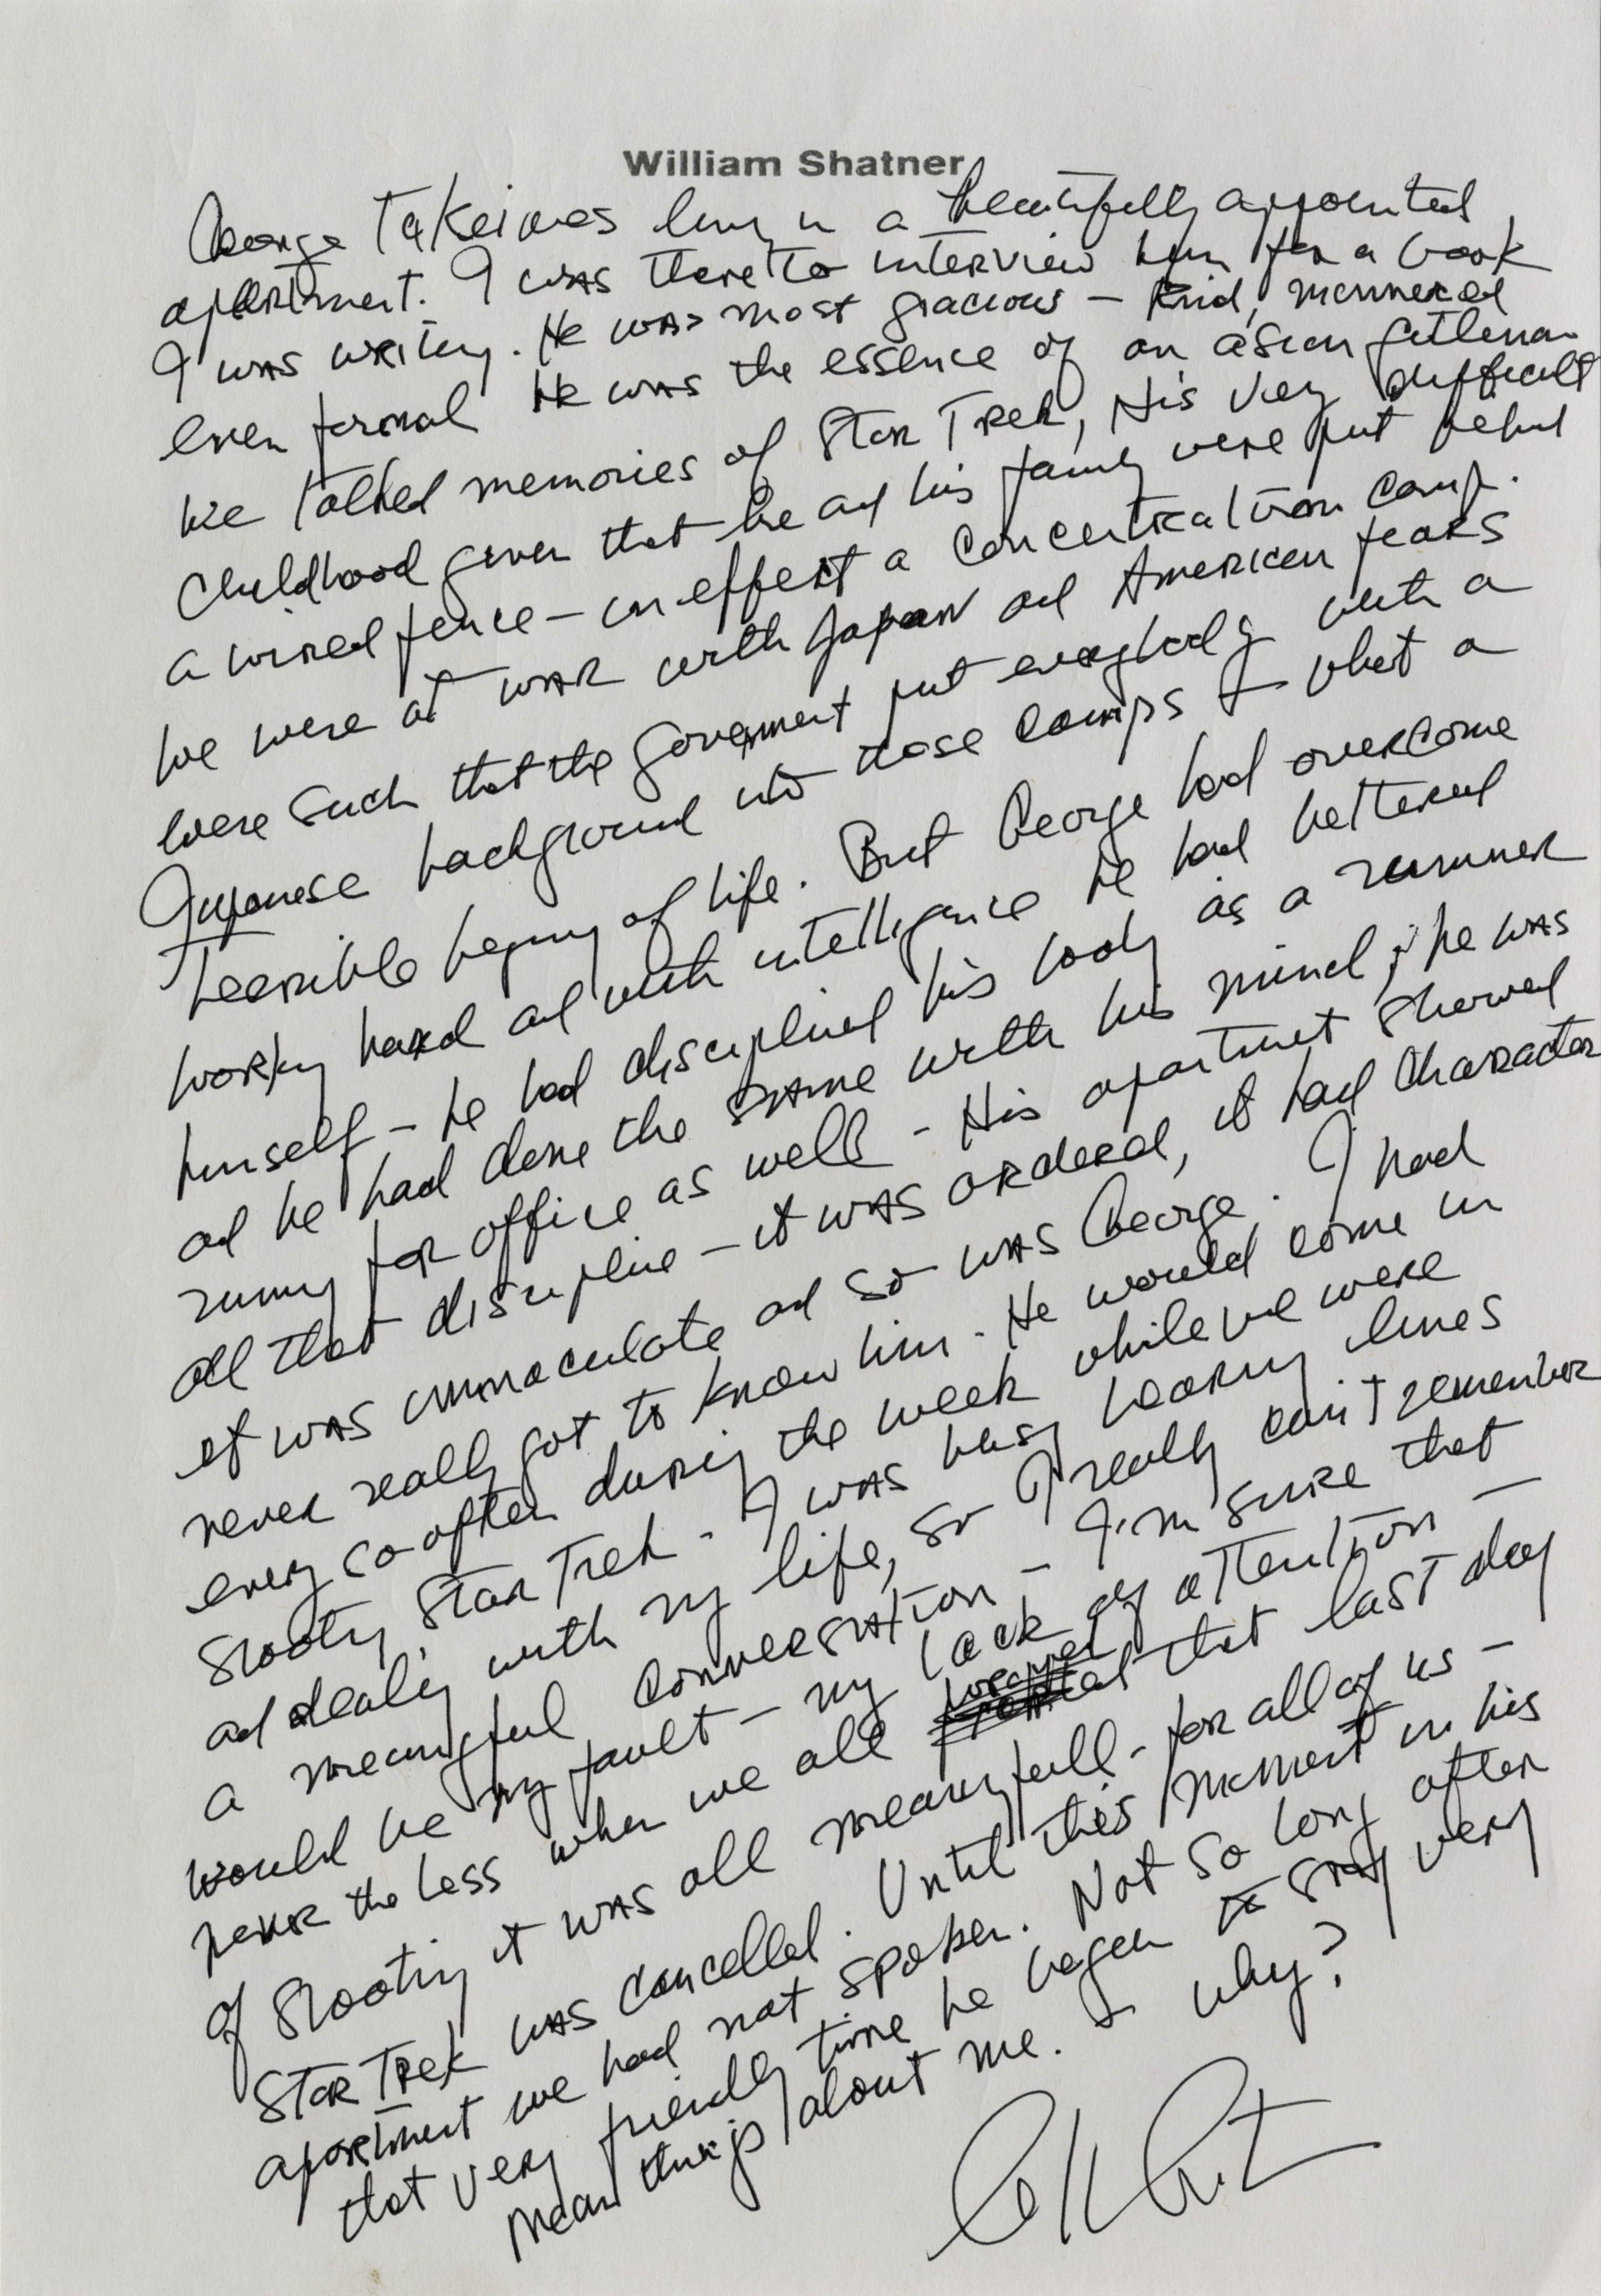 William Shatner
George Takei was living in a beautifully appointed
apartment. I was there to interview him for a book
I was writing. He was most gracious - kind, mannered
even formal He was the essence of an asian gentleman
We talked memories of Star Trek, His very difficult
childhood given that he and his family were put behind
a wired fence - in effect a concentration camp.
We were at war with Japan and American fears
were such that the government put everybody with a
Japanese background into those camps - what a
terrible begining of life. But George had overcome
working hard and with intelligence he had bettered
himself - he had disciplined his body as a runner
and he had done the same with his mind; he was
running for office as well - His apartment showed
all that discipline - it was ordered, it had character
it was immaculate and so was George. I had
never really got to know him. He would come in
every so often during the week while we were
shooting Star Trek - I was busy learning lines
and dealing with my life, so I really can't remember
a meaningful conversation - I'm sure that
would be my fault - my lack of attention -
never the less when we all that last day
of shooting it was all meaningfull - for all of us -
Star Trek was cancelled. Until this moment in his
apartment we had not spoken. Not so long after
that very friendly time he began to say very
mean things about me. - why?